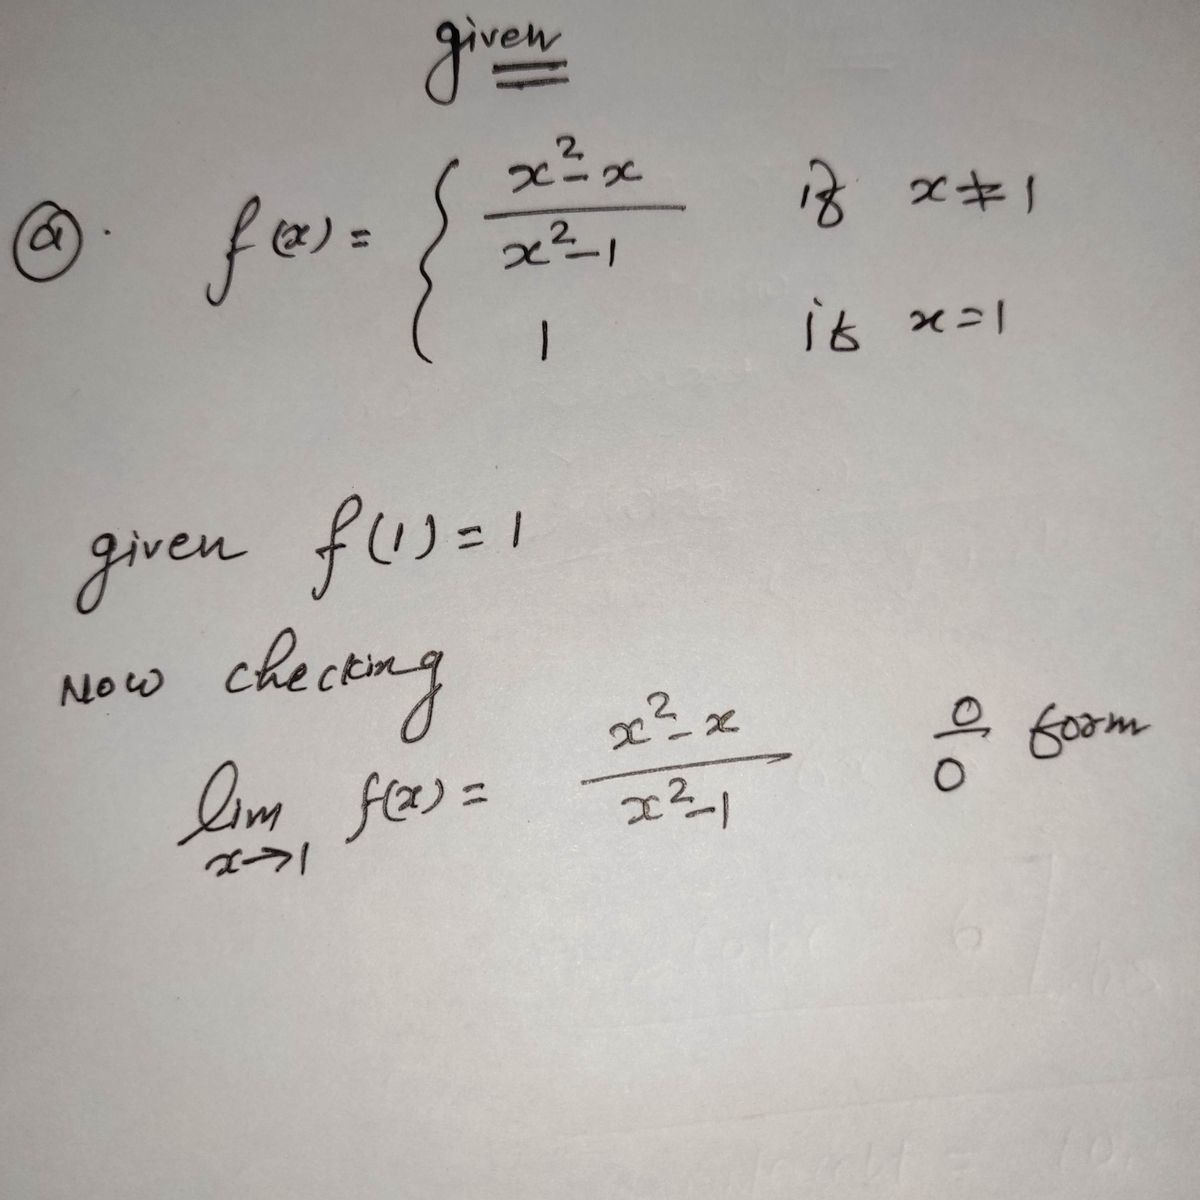 given
(a). f(x) = { x²-x / x²-1 if x≠1
1 if x=1
given f(1)=1
Now checking
lim x→1 f(x) = x²-x / x²-1 0/0 form